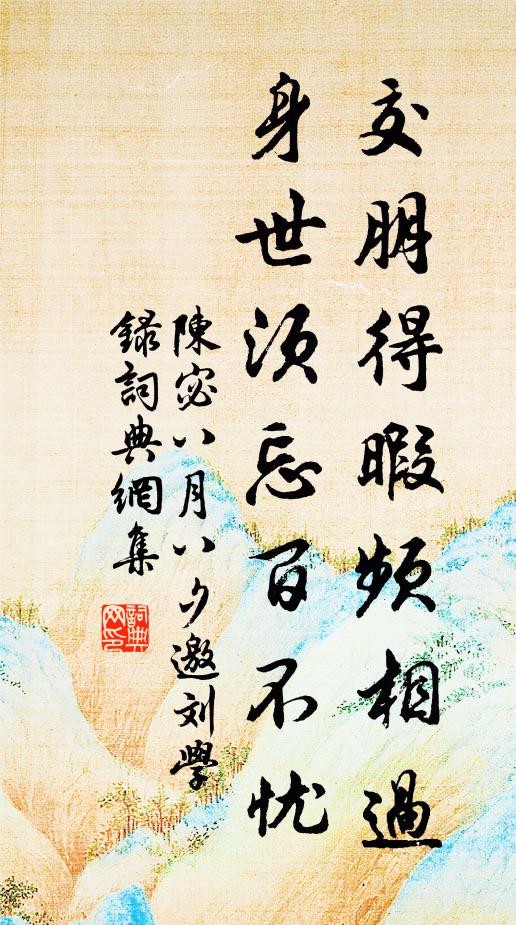 交朋得暇频相過
身世须忘百不忧
陳宓八月八夕邀刘學
録詞典網集
詞典網印